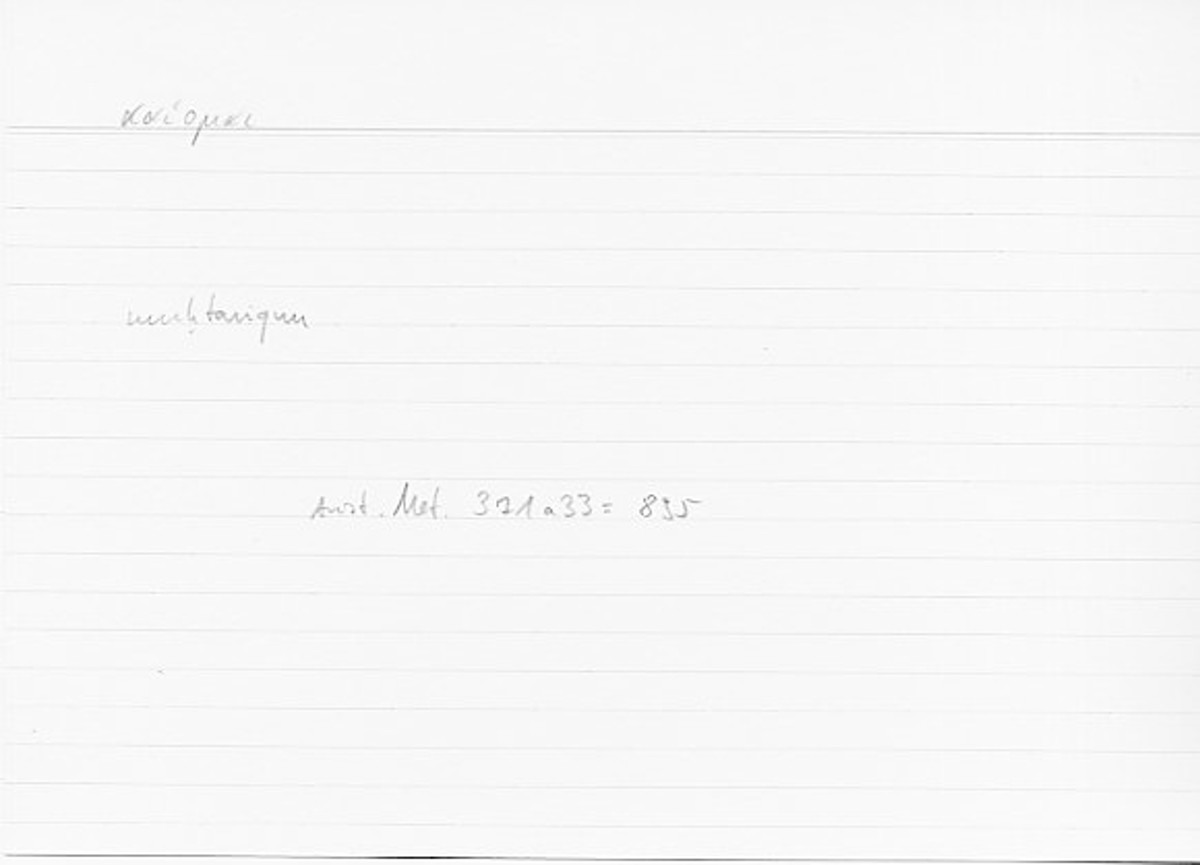 καίομαι
muḥtariqun
Arist. Met. 371a33 = 835